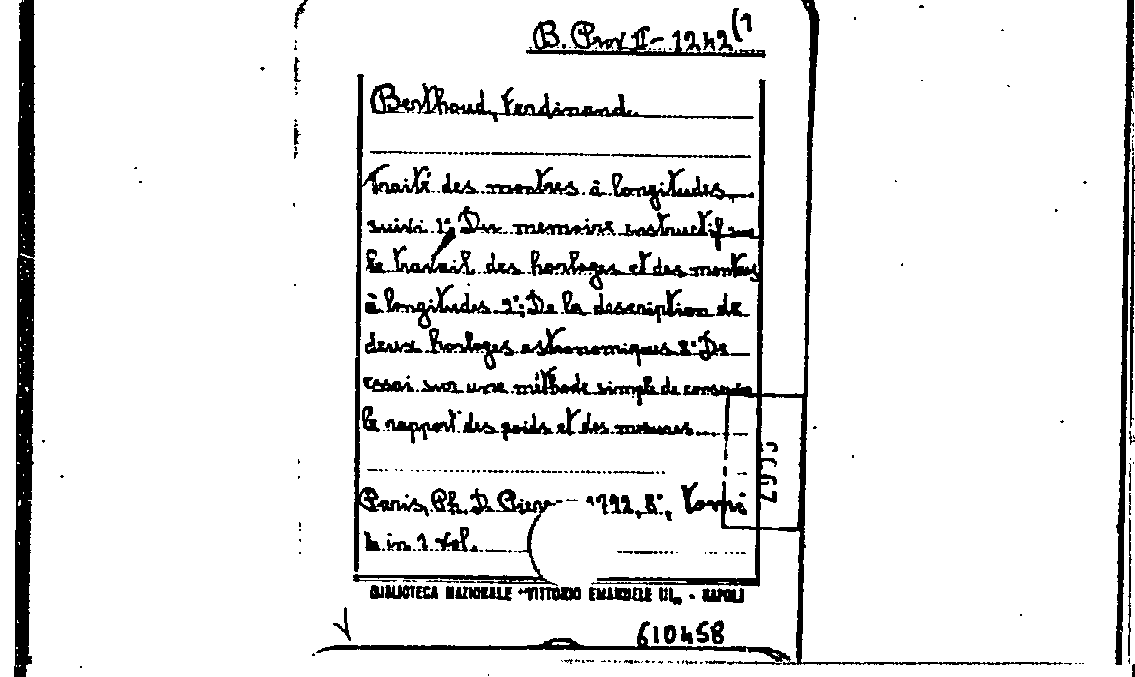 B. Prov II - 1242 (1
Berthoud, Ferdinand.
Traité des montres à longitudes,
suivi 1°; Du memoire instructif sur
le travail des horloges et des montres
à longitudes 2°; De la description de
deux horloges astronomiques 3° De
essai sur une méthode simple de conserver
le rapport des poids et des mesures....
Paris, Ph. D. 1792, 8°, Tomi
4 in 1 vol.
BIBLIOTECA NAZIONALE "VITTORIO EMANUELE III" - NAPOLI
610458